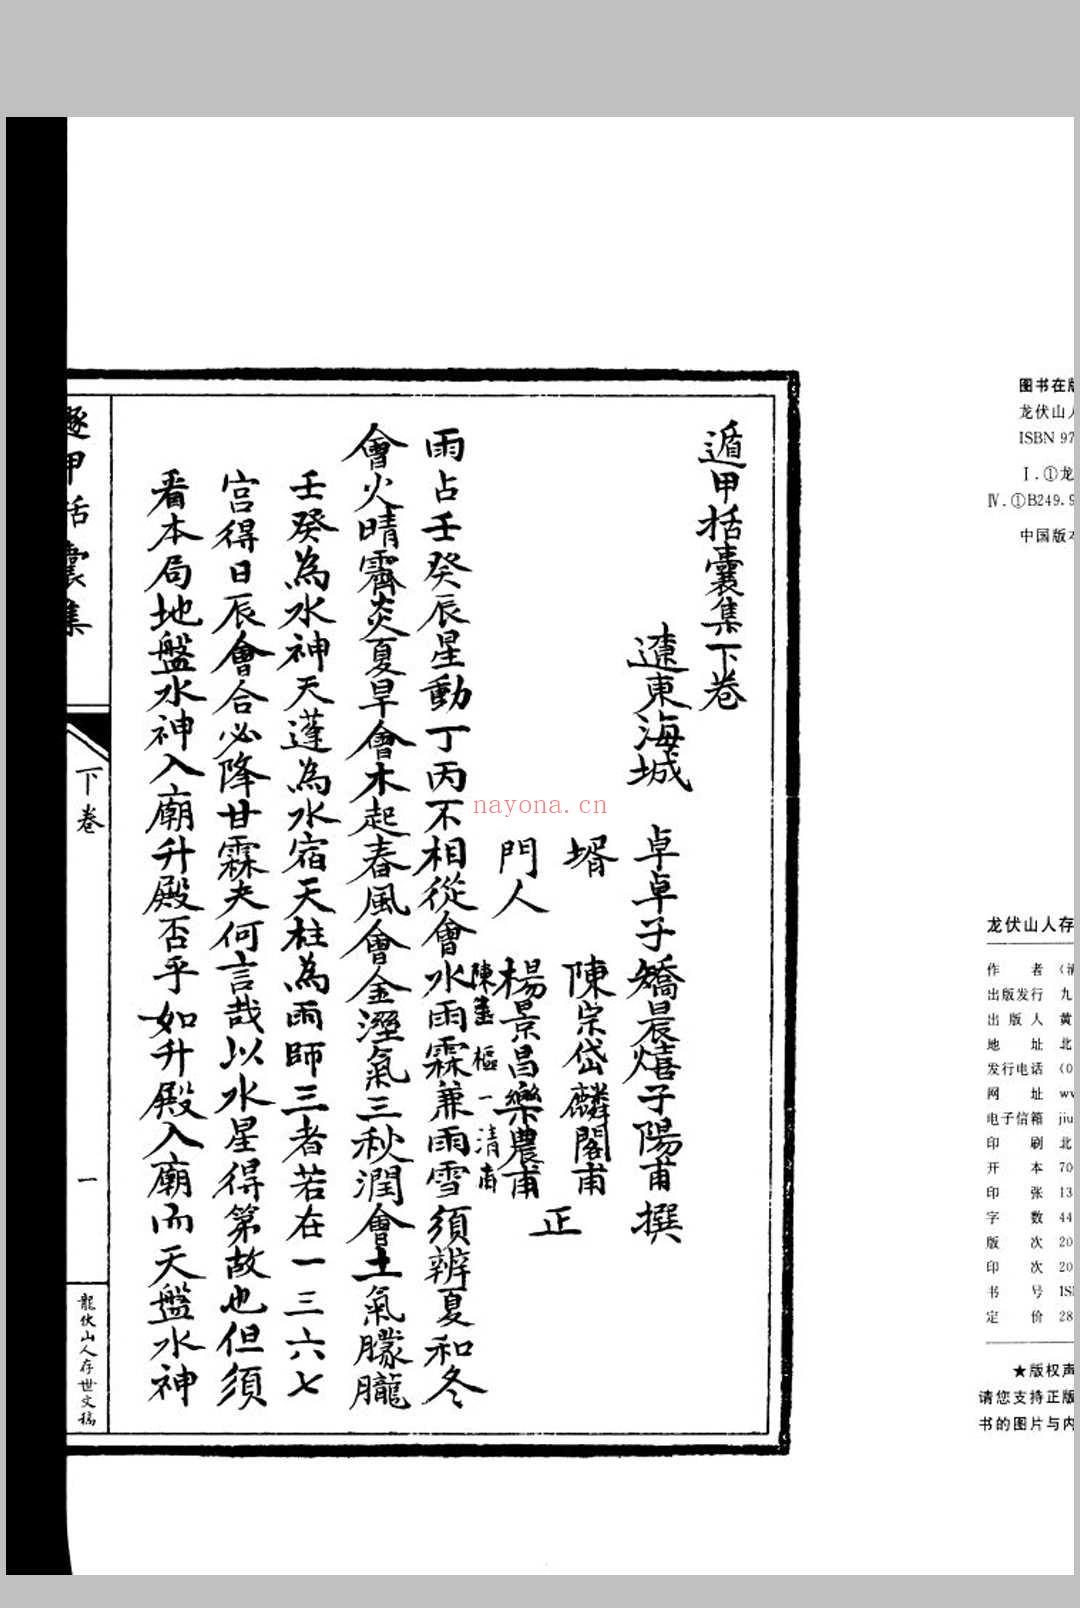 遁甲括囊集下卷
遼東海城 卓卓子矯晨熺子陽甫撰
壻 陳宗岱麟閣甫
門人 楊景昌樂農甫 正
陳 樞一清甫
雨占壬癸辰星動丁丙不相從會水雨霖兼雨雪須辨夏和冬
會火晴霽炎夏旱會木起春風會金溼氣三秋潤會土氣朦朧
壬癸為水神天蓬為水宿天柱為雨師三者若在一三六七
宮得日辰會合必降甘霖夫何言哉以水星得第故也但須
看本局地盤水神入廟升殿否乎如升殿入廟而天盤水神
遯甲括囊集
下卷
一
龍伏山人存世文稿
nayona.cn
图书在版
龙伏山人
ISBN 97
Ⅰ.①龙
Ⅳ.①B249.9
中国版本
龙伏山人存
作 者 (清
出版发行 九
出 版 人 黄
地 址 北
发行电话 (0
网 址 ww
电子信箱 jiu
印 刷 北
开 本 70
印 张 13
字 数 44
版 次 20
印 次 20
书 号 ISI
定 价 28
★版权声
请您支持正版
书的图片与内